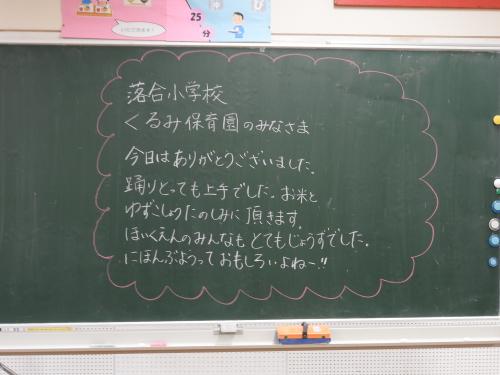 25
分
落合小学校
くるみ保育園のみなさま
今日はありがとうございました。
踊りとっても上手でした。お米と
ゆずこしょうたのしみに頂きます。
ほいくえんのみんなも とてもじょうずでした。
にほんぶようっておもしろいよねー!!